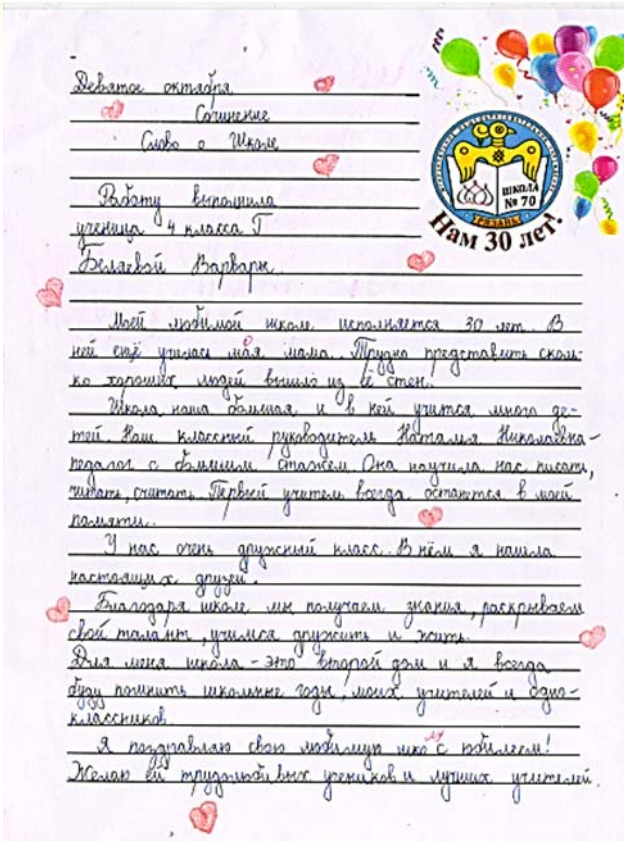 Девятое октября
Сочинение
Слово о Школе
Работу выполнила
ученица 4 класса Г
Беляевой Варвары.
ШКОЛА
№ 70
РЯЗАНЬ
Нам 30 лет!
Моей любимой школе исполняется 30 лет. В
ней ещё училась моя мама. Трудно представить сколь-
ко хороших людей вышло из её стен.
Школа наша большая и в ней учится много де-
тей. Наш классный руководитель Наталья Николаевна-
педагог с большим стажем. Она научила нас писать,
читать, считать. Первый учитель всегда остаются в моей
памяти.
У нас очень дружный класс. В нём я нашла
настоящих друзей.
Благодаря школе мы получаем знания, раскрываем
свой талант, учимся дружить и жить.
Для меня школа - это второй дом и я всегда
буду помнить школьные годы, моих учителей и одно-
классников.
Я поздравляю свою любимую школу с юбилеем!
Желаю ей трудолюбивых учеников и лучших учителей.